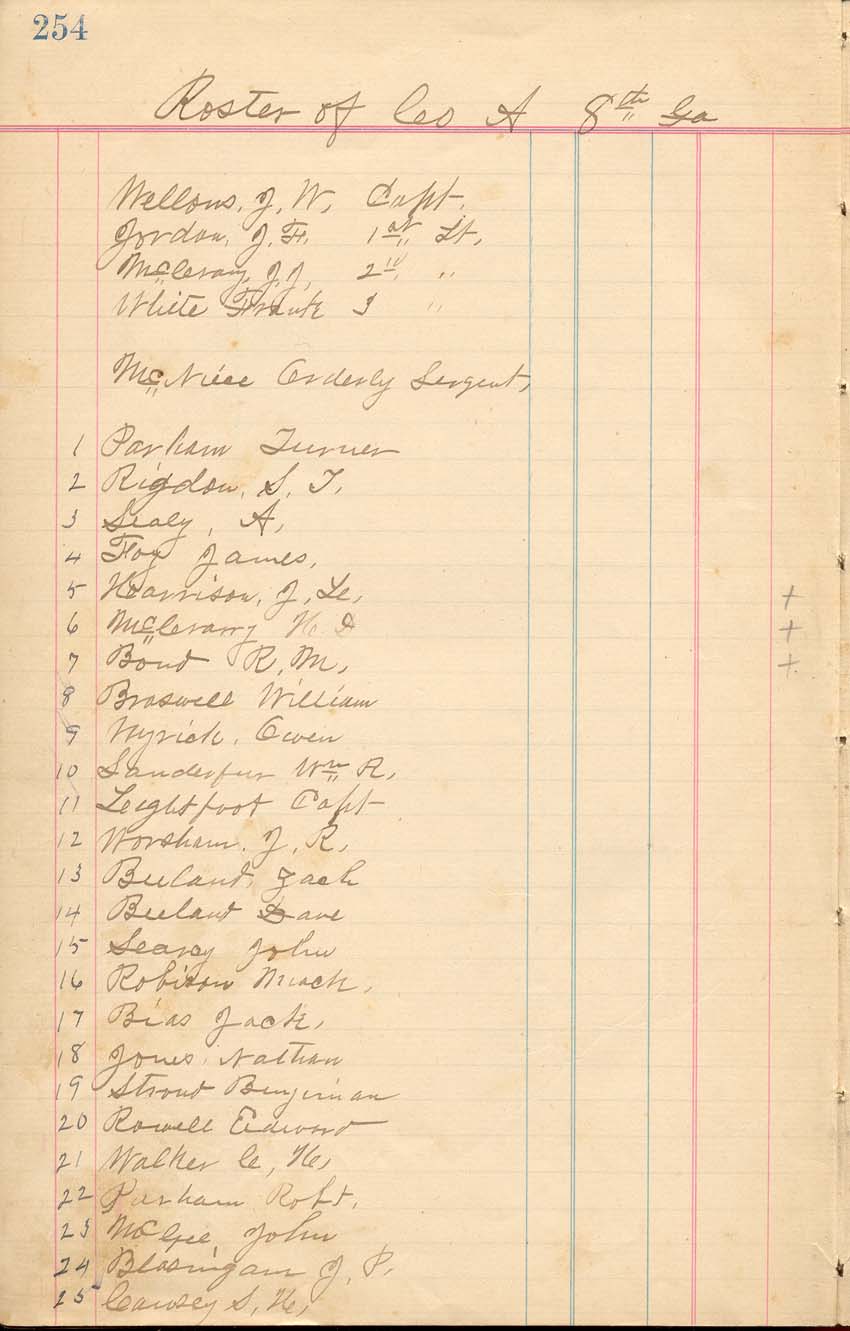 254
Roster of Co A 8th Ga
Wellons, J, W, Capt.
Jordon, J. F. 1st Lt,
McCrary, J, J, 2nd "
White Frank 3 "
McNiece Orderly Sergent,
1 Parham Turner
2 Rigdon, S, T,
3 Sealy, A,
4 Foy James,
5 Harrison, J, C, +
6 McCrarry H D +
7 Bond R, M, +
8 Braswell William
9 Myrick, Owen
10 Sanderfur Wm R,
11 Leightfoot Capt
12 Worsham, J, R,
13 Beeland, Zack
14 Beeland Dave
15 Searcy John
16 Robison Mack,
17 Bias Jack,
18 Jones, Nathan
19 Stroud Benjiman
20 Rowell Edward
21 Walker C, H,
22 Parham Robt,
23 McGee John
24 Blasingam J, P,
25 Causey S, H,